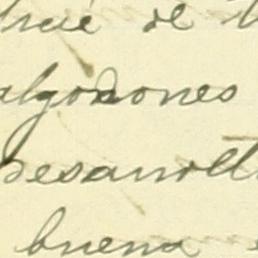 de
algodones
desarroll
buena